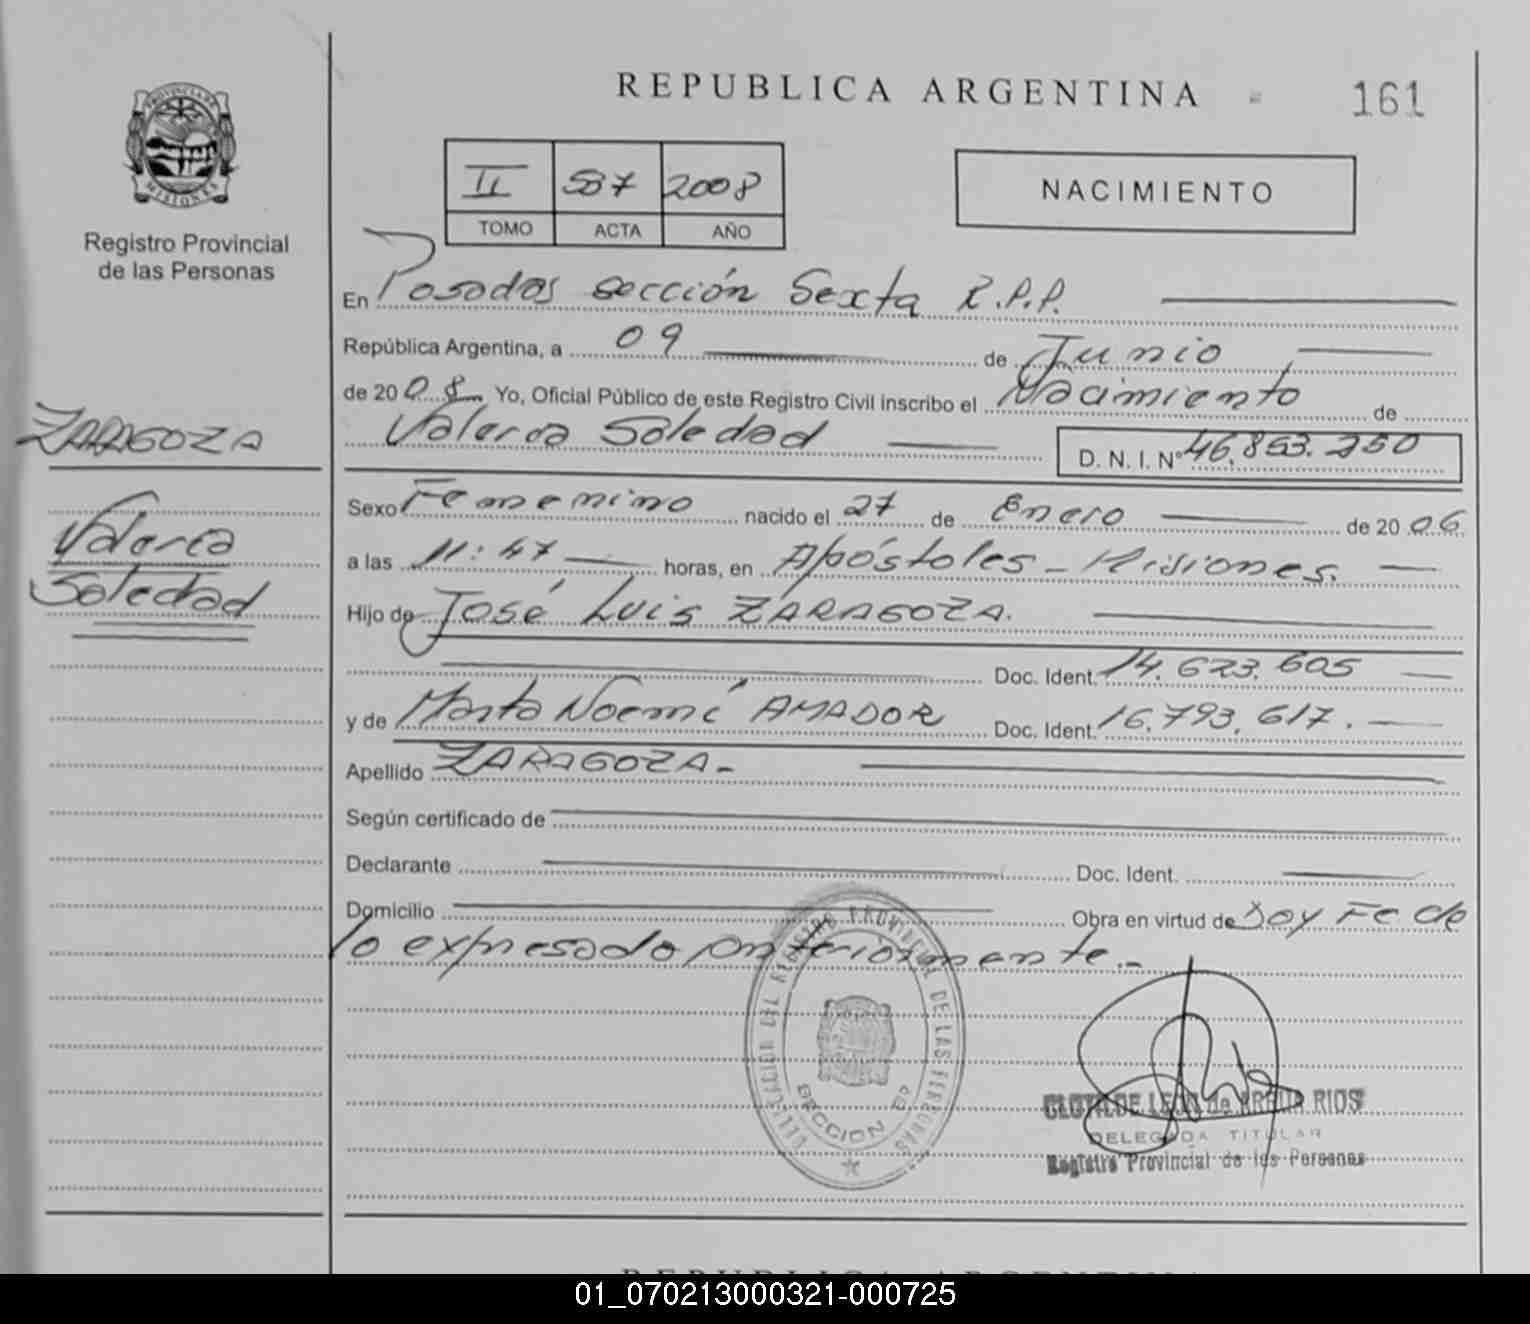 REPUBLICA ARGENTINA
161
PROVINCIA DE
MISIONES
Registro Provincial
de las Personas
II 587 2008
TOMO ACTA AÑO
NACIMIENTO
En Posadas sección Sexta R.P.P.
República Argentina, a 09 de Junio
de 2008 Yo, Oficial Público de este Registro Civil inscribo el Nacimiento de
Valeria Soledad D. N. I. Nº 46.853.250
ZARAGOZA
Valeria
Soledad
Sexo Femenino nacido el 27 de Enero de 2006
a las 11:47 horas, en Apóstoles - Misiones.
Hijo de José Luis ZARAGOZA.
Doc. Ident. 14.623.605
y de Marta Noemí AMADOR Doc. Ident. 16.793.617.
Apellido ZARAGOZA.-
Según certificado de
Declarante Doc. Ident.
Domicilio Obra en virtud de Doy Fe de
lo expresado anteriormente.-
DELEGACION DEL REGISTRO PROVINCIAL DE LAS PERSONAS
SECCION 6ª
CLOTILDE LEON de RIOS
DELEGADA TITULAR
Registro Provincial de las Personas
REPUBLICA ARGENTINA
01_070213000321-000725